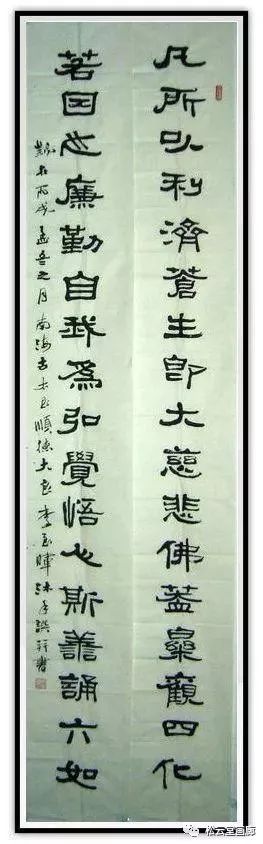 凡所以利濟蒼生即大慈悲佛蓋觀四化
若因也廉勤自我為弘覺悟心斯善誦六如
歲在丙戌孟冬之月南海順德大良李暉沐手撰并書
松云堂画廊